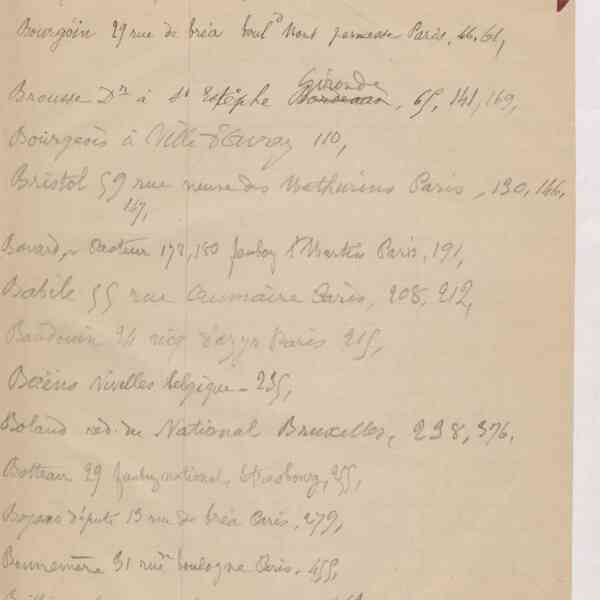 Bourgoin 29 rue de bréa boul^d Mont parnasse Paris. 46. 61,
Gironde
Brousse D^r à S^t Estèphe Bordeaux, 65, 141, 169,
Bourgeois à Ville d'Avray 110,
Bristol 59 rue neuve des Mathurins Paris, 130, 146,
147,
178, 180 faubog S^t Martin Paris, 191,
Babile 55 rue Aumaire Paris, 208, 212,
Baudouin 24 Paris 215,
Baëns Nivelles belgique - 235,
Boland réd. du National Bruxelles, 238, 376,
Botteau 29 faubog national, Strasbourg, 255,
député 13 rue de bréa Paris, 279,
Bonnemère 31 rue boulogne Paris, 455,